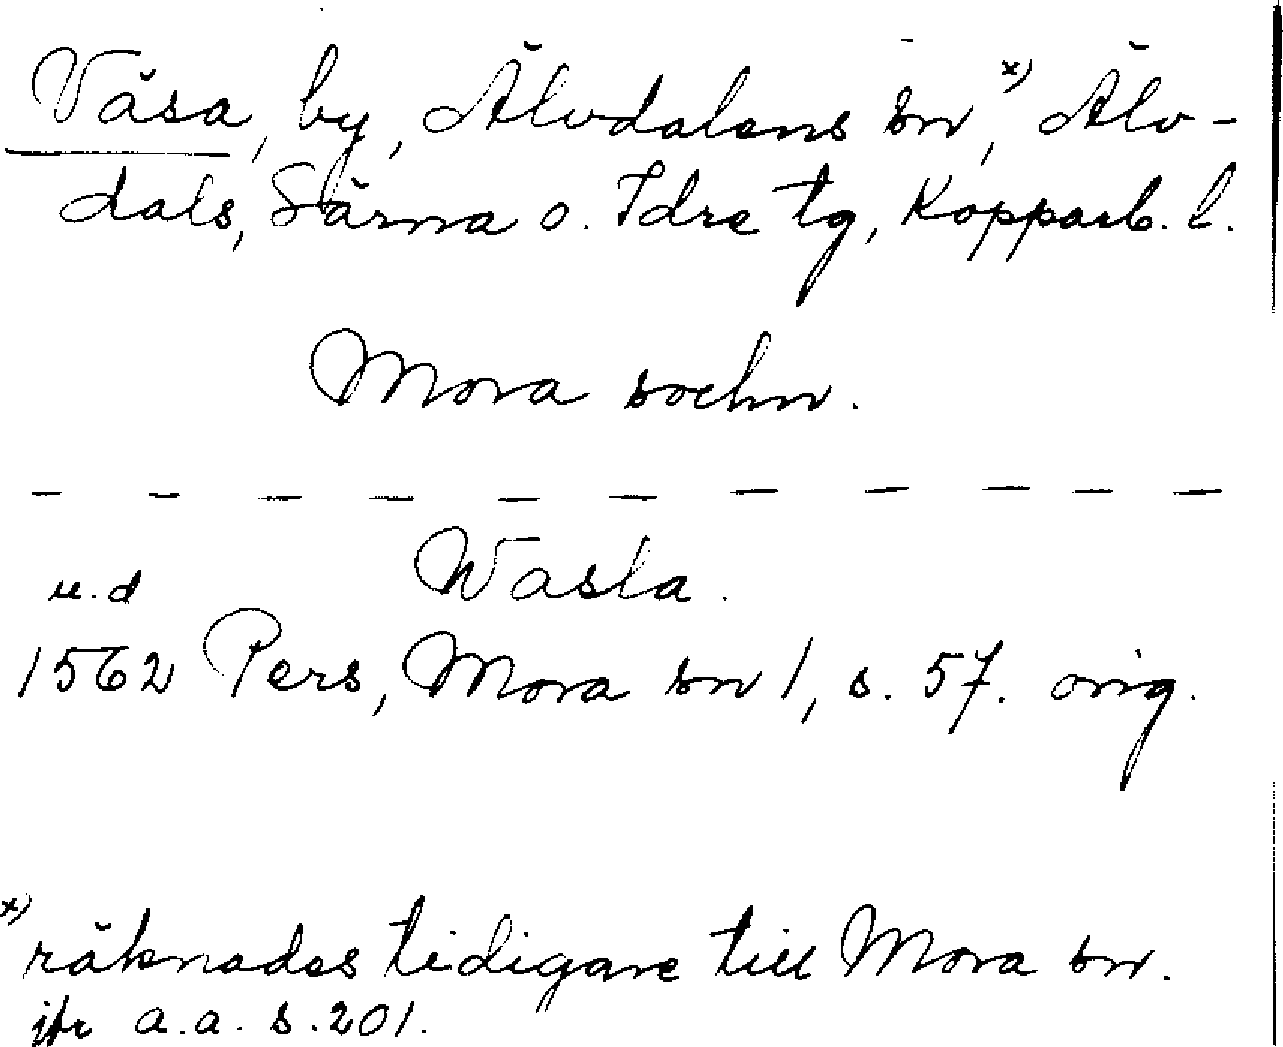 Väsa, by, Älvdalens sn,x) Älv-
dals, Särna o. Idre tg, Kopparb. l.
Mora sochn.
— — — — — — — — — — —
Wasla.
u.d
1562 Pers, Mora sn 1, s. 57. orig.
x) räknades tidigare till Mora sn.
jfr a.a. s. 201.